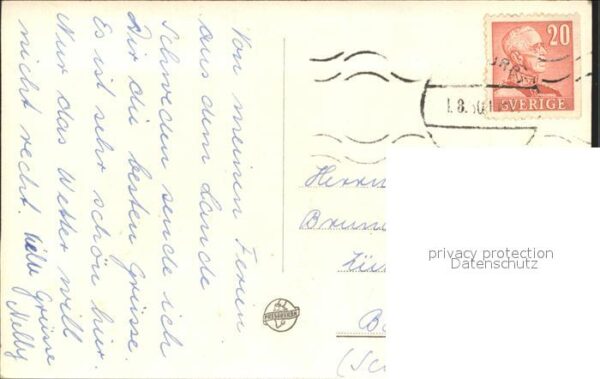 Von meinen Ferien
aus dem Lande
Schweden sende ich
Dir die besten Grüsse.
Es ist sehr schön hier.
Nur das Wetter will
nicht recht. Grüsse
Nelly
20
SVERIGE
1.8.
Herrn
privacy protection
Datenschutz